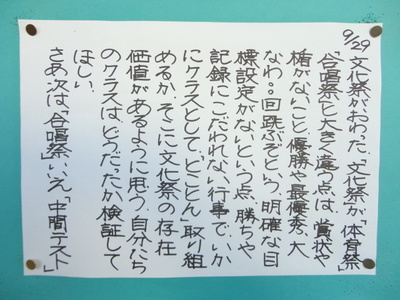 9/29
文化祭がおわった。文化祭が「体育祭」
「合唱祭」と大きく違う点は、賞状や
楯がないこと(優勝や最優秀、大
なわ○○回跳ぶぞという、明確な目
標設定がないという点。勝ちや
記録にこだわれない行事で、いか
にクラスとして、“とことん”取り組
めるか、そこに文化祭の存在
価値があるように思う。自分たち
のクラスは、どうだったか検証して
ほしい。
さあ次は、「合唱祭」いいえ「中間テスト」